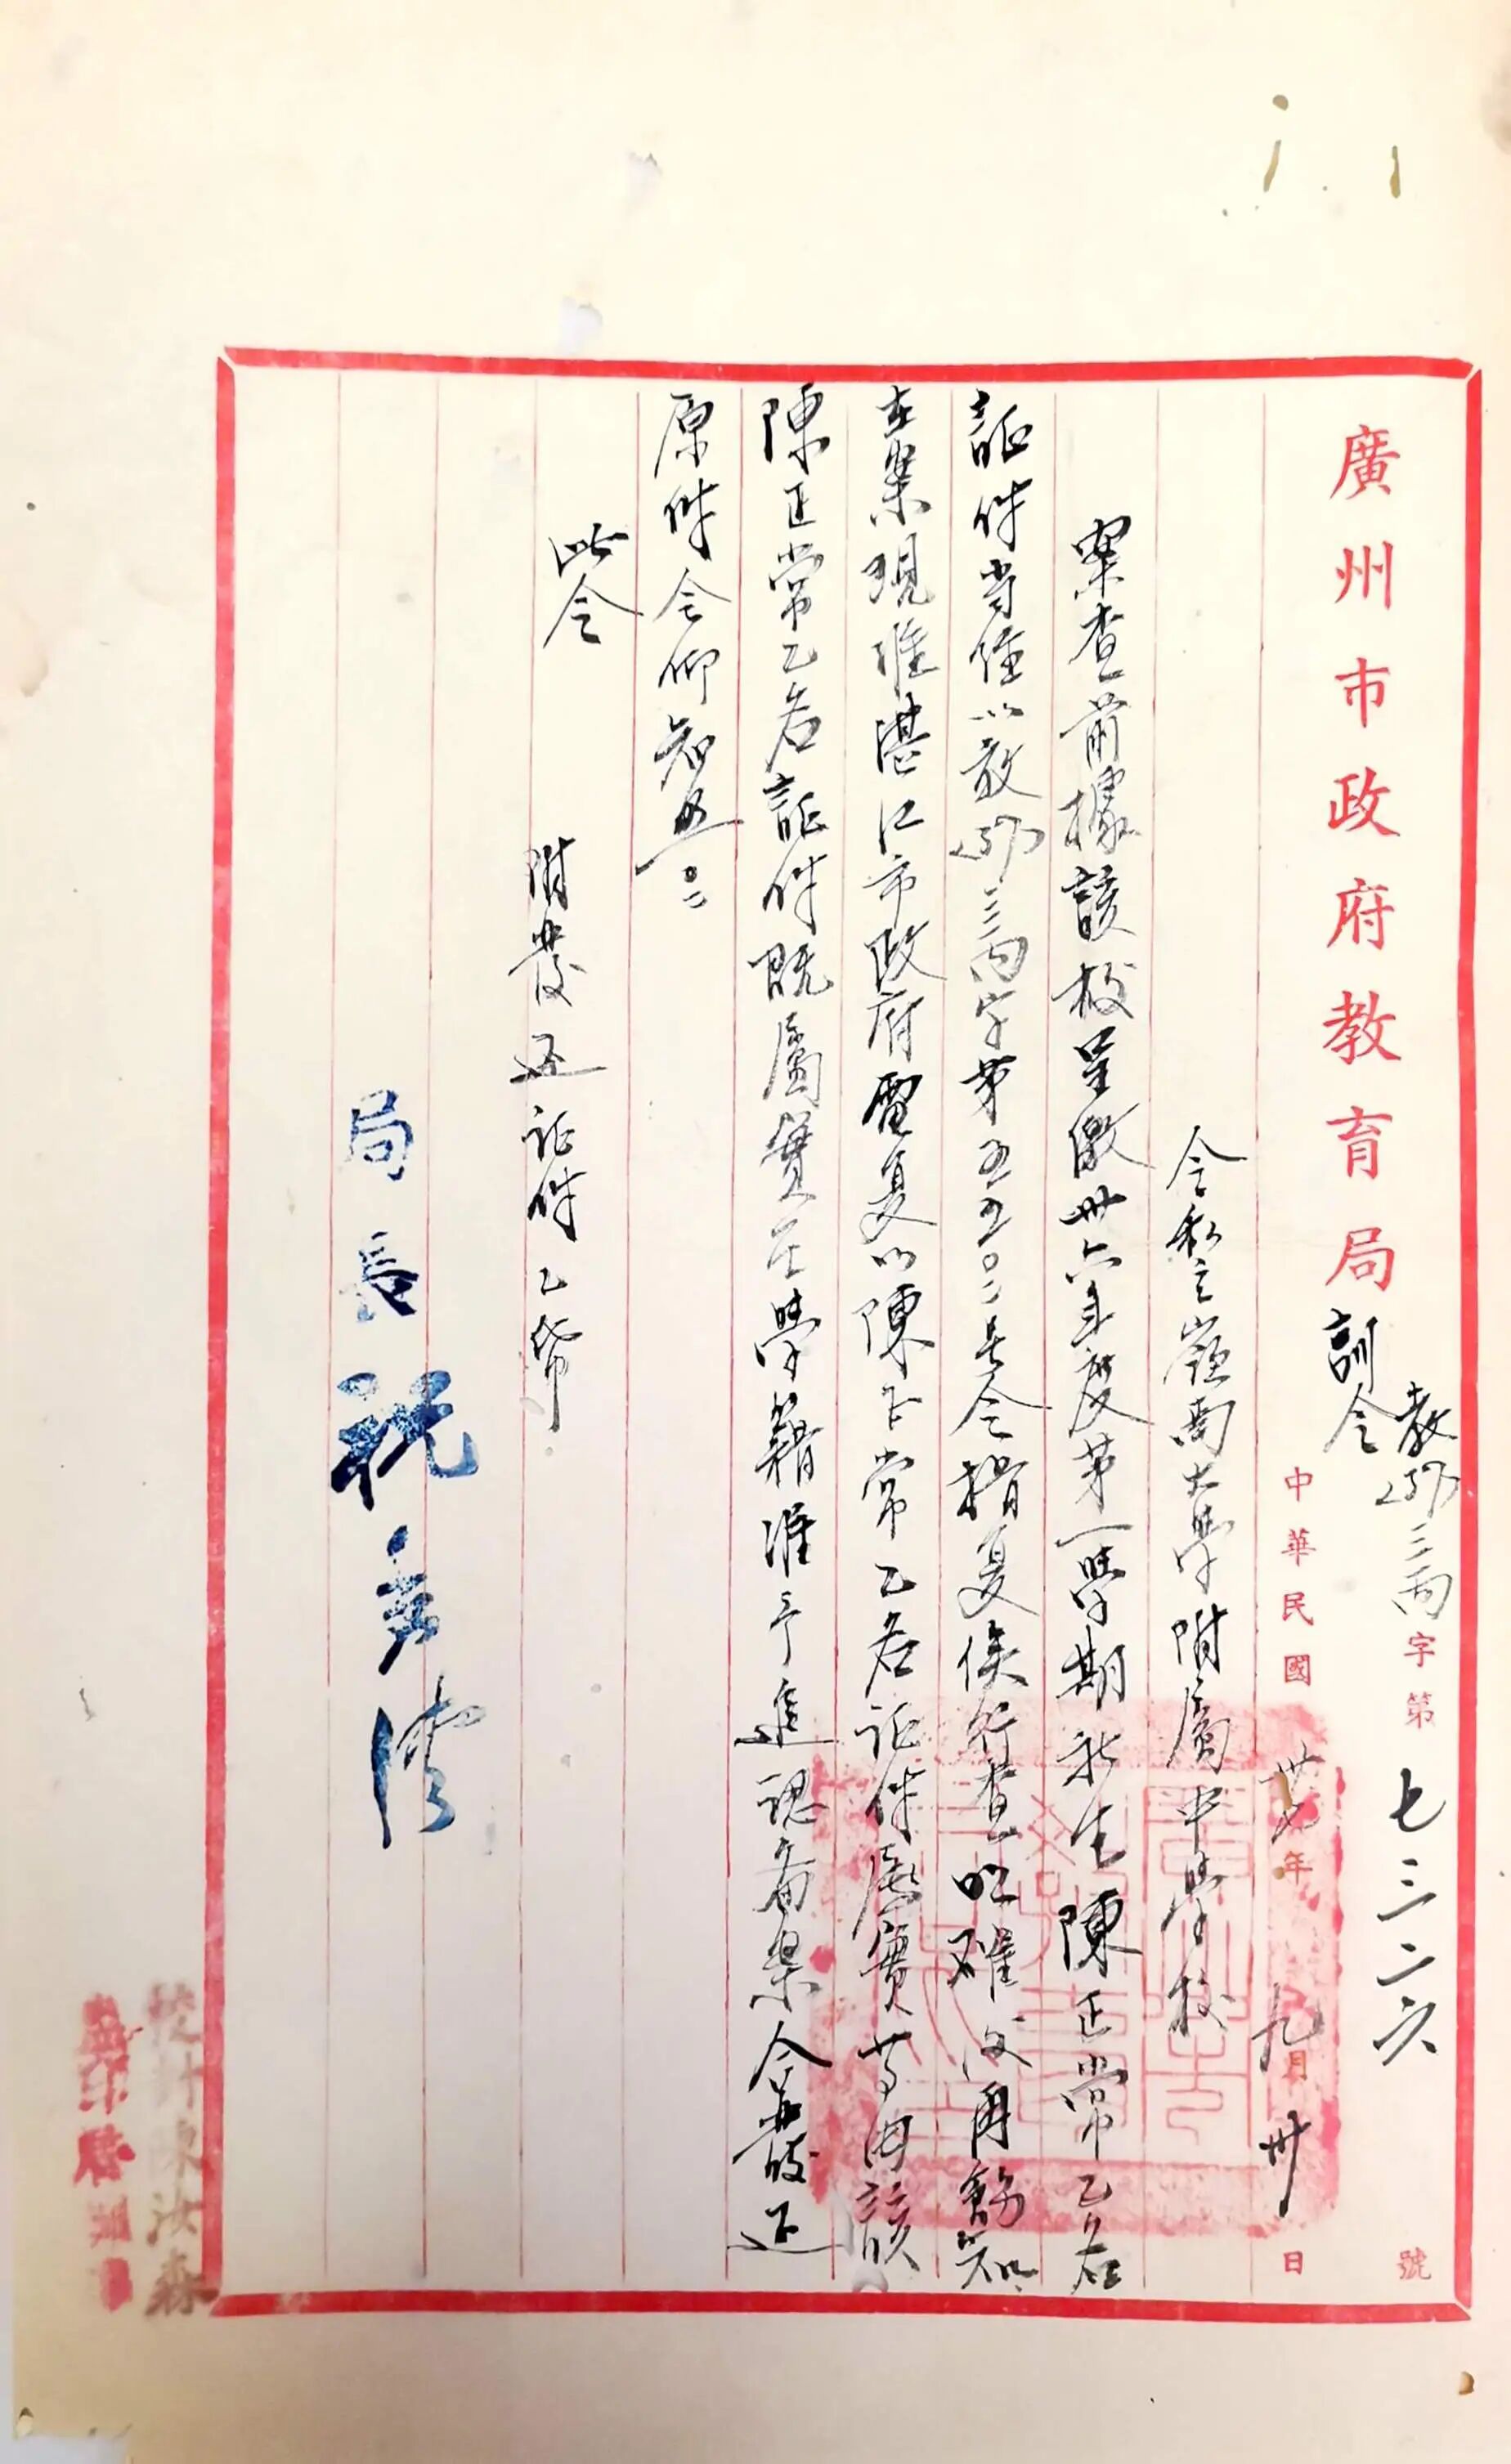 廣州市政府教育局訓令
教 三丙字第七三二六號
中華民國卅 年九月卅日
令私立嶺南大學附屬中學校
案查前據該校呈繳卅六年度第一學期新生陳正常乙名
証件當經以教 三丙字第五五〇二號令指复俟行查明確後再飭知
在案現准湛江市政府電复以陳正常乙名証件屬實等由該
陳正常乙名証件既屬實在學籍准予進認备案令發還
原件令仰知照
此令
附發還証件乙帋
局長祝秀俠
校對陳汝森